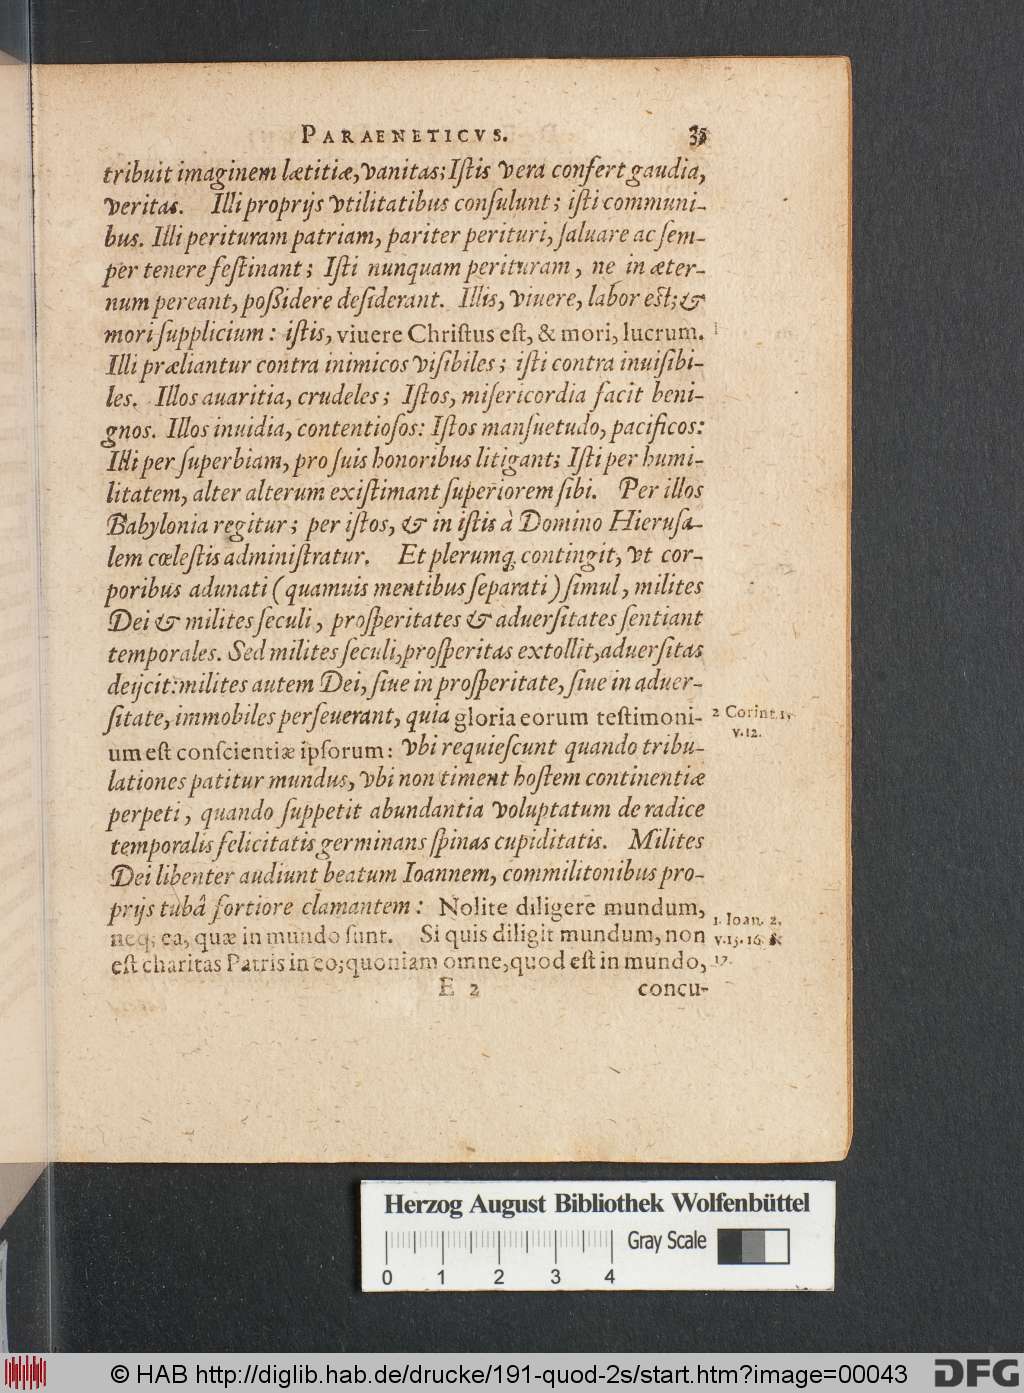 PARAENETICVS. 35
tribuit imaginem lætitiæ, vanitas; Iſtis vera confert gaudia,
veritas. Illi proprijs vtilitatibus conſulunt; iſti communi-
bus. Illi perituram patriam, pariter perituri, ſaluare ac ſem-
per tenere feſtinant; Iſti nunquam perituram, ne in æter-
num pereant, poſsidere deſiderant. Illis, viuere, labor eſt; &
mori ſupplicium: iſtis, viuere Chriſtus eſt, & mori, lucrum.
Illi præliantur contra inimicos viſibiles; iſti contra inuiſibi-
les. Illos auaritia, crudeles; Iſtos, miſericordia facit beni-
gnos. Illos inuidia, contentioſos: Iſtos manſuetudo, pacificos:
Illi per ſuperbiam, pro ſuis honoribus litigant; Iſti per humi-
litatem, alter alterum exiſtimant ſuperiorem ſibi. Per illos
Babylonia regitur; per iſtos, & in iſtis à Domino Hieruſa-
lem cœleſtis adminiſtratur. Et plerumq; contingit, vt cor-
poribus adunati (quamuis mentibus ſeparati) ſimul, milites
Dei & milites ſeculi, proſperitates & aduerſitates ſentiant
temporales. Sed milites ſeculi, proſperitas extollit, aduerſitas
deijcit: milites autem Dei, ſiue in proſperitate, ſiue in aduer-
ſitate, immobiles perſeuerant, quia gloria eorum teſtimoni-
um eſt conſcientiæ ipſorum: vbi requieſcunt quando tribu-
lationes patitur mundus, vbi non timent hoſtem continentiæ
perpeti, quando ſuppetit abundantia voluptatum de radice
temporalis felicitatis germinans ſpinas cupiditatis. Milites
Dei libenter audiunt beatum Ioannem, commilitonibus pro-
prijs tubâ fortiore clamantem: Nolite diligere mundum,
neq; ea, quæ in mundo ſunt. Si quis diligit mundum, non
eſt charitas Patris in eo; quoniam omne, quod eſt in mundo,
E 2 concu-
2 Corint. 1.
v. 12.
1. Ioan. 2.
v. 15. 16. &
17.
Herzog August Bibliothek Wolfenbüttel
Gray Scale
0 1 2 3 4
© HAB http://diglib.hab.de/drucke/191-quod-2s/start.htm?image=00043
DFG